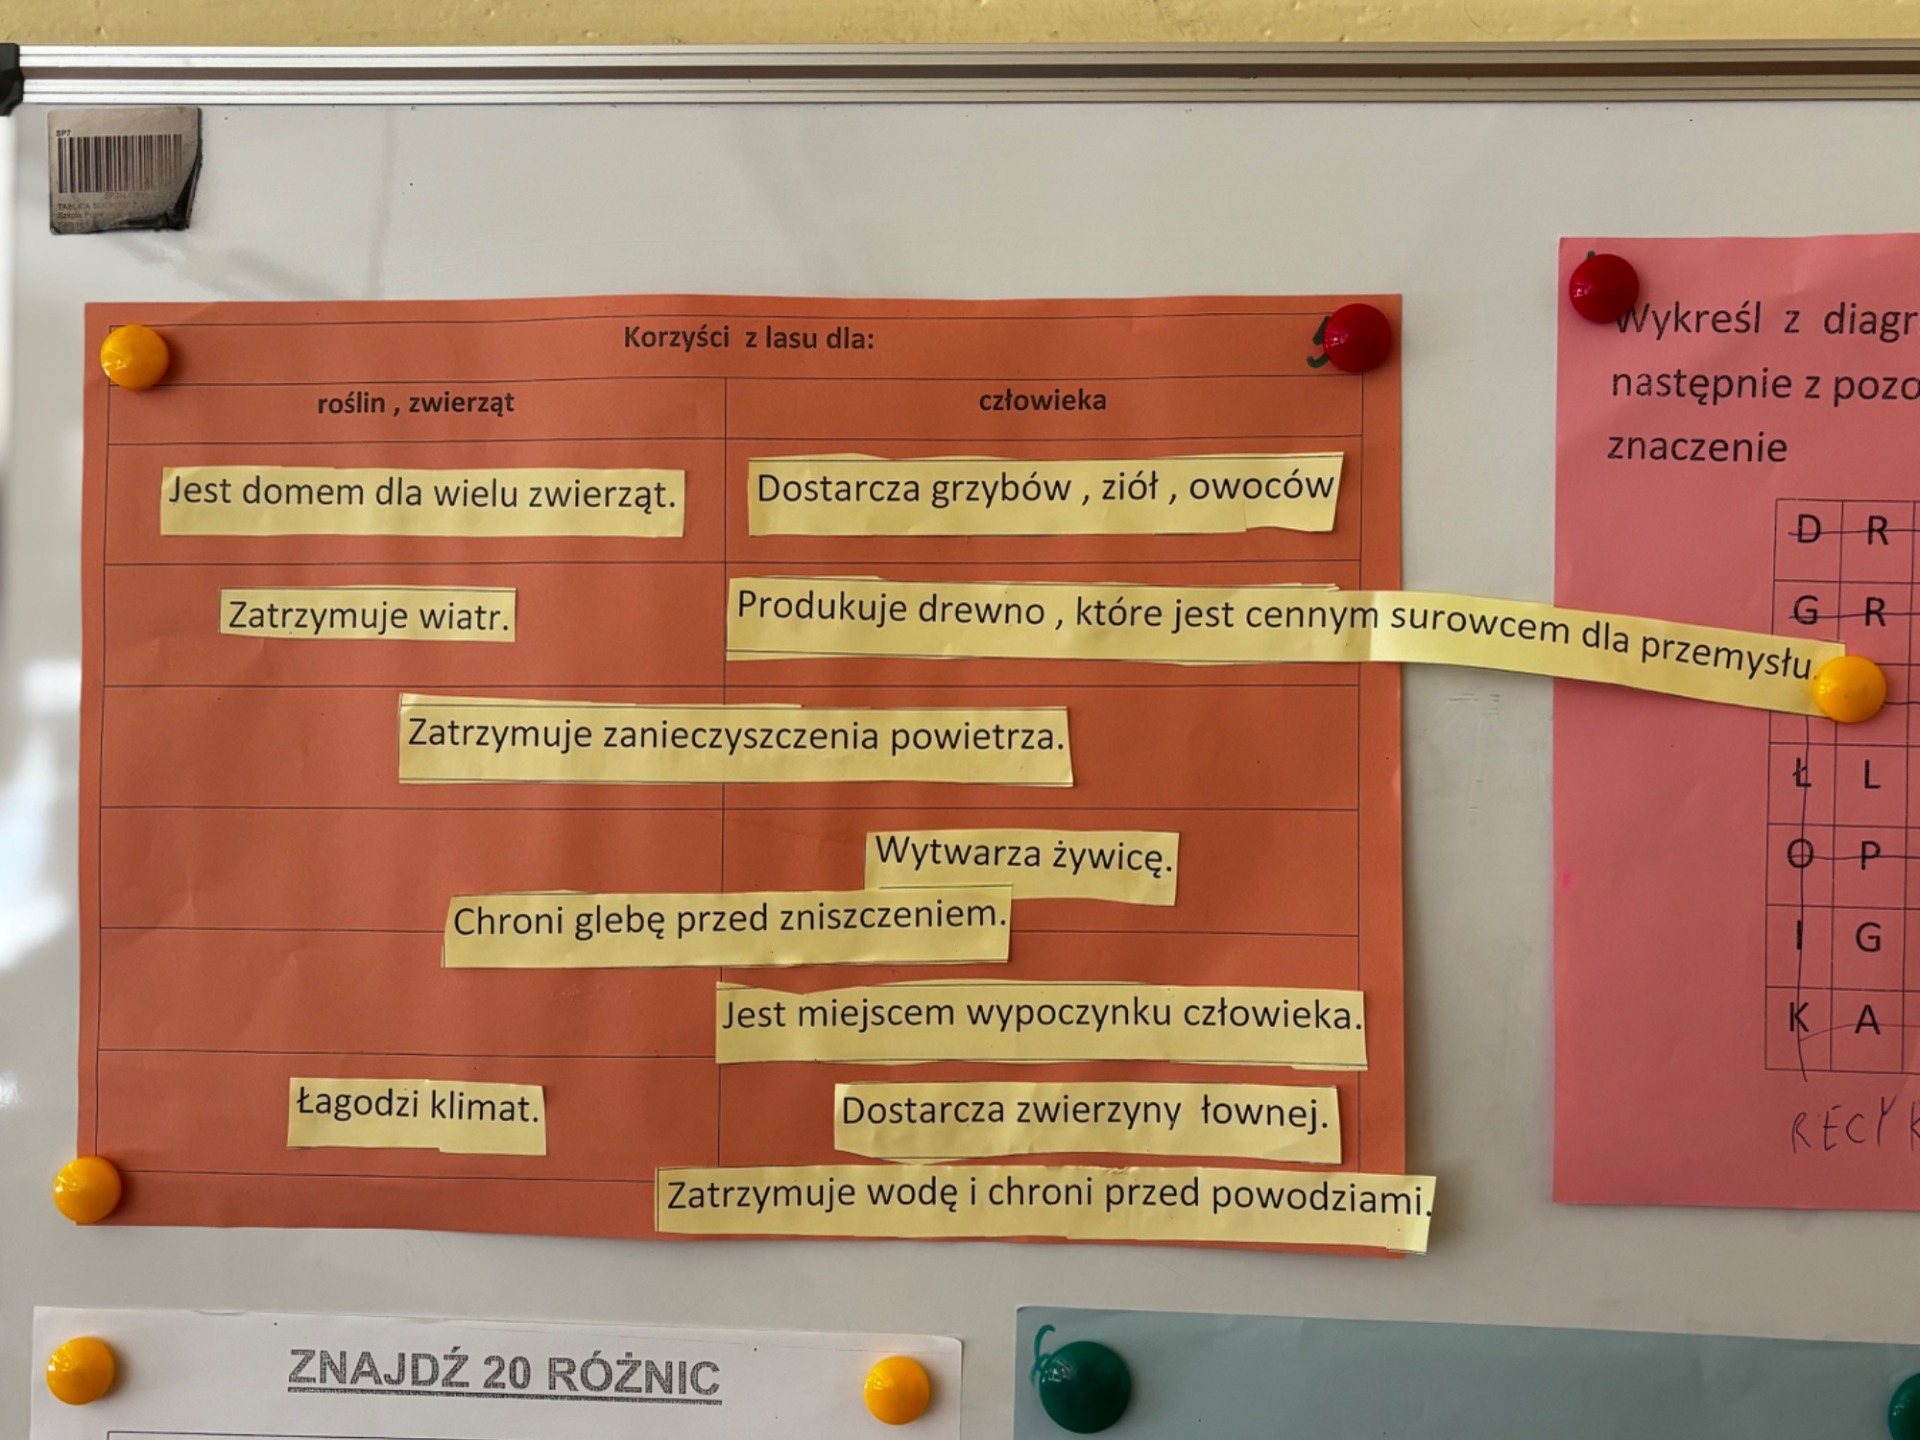 SP7
Korzyści z lasu dla:
roślin , zwierząt
człowieka
Jest domem dla wielu zwierząt.
Dostarcza grzybów , ziół , owoców
Zatrzymuje wiatr.
Produkuje drewno , które jest cennym surowcem dla przemysłu.
Zatrzymuje zanieczyszczenia powietrza.
Wytwarza żywicę.
Chroni glebę przed zniszczeniem.
Jest miejscem wypoczynku człowieka.
Łagodzi klimat.
Dostarcza zwierzyny łownej.
Zatrzymuje wodę i chroni przed powodziami.
Wykreśl z diagr
następnie z pozo
znaczenie
D R
G R
Ł L
O P
I G
K A
RECYK
ZNAJDŹ 20 RÓŻNIC